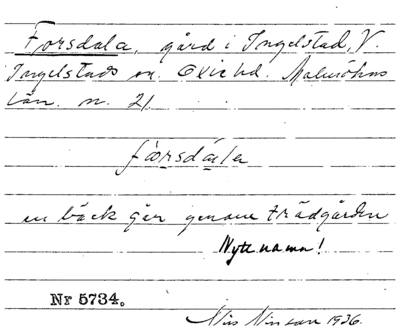 Forsdala, gård i Ingelstad, V.
Ingelstads sn. Oxie hd. Malmöhus
län. n. 21
fòrsdàla
en bäck går genom trädgården
Nytt namn!
Nr 5734.
Nils Nilsson 1936.